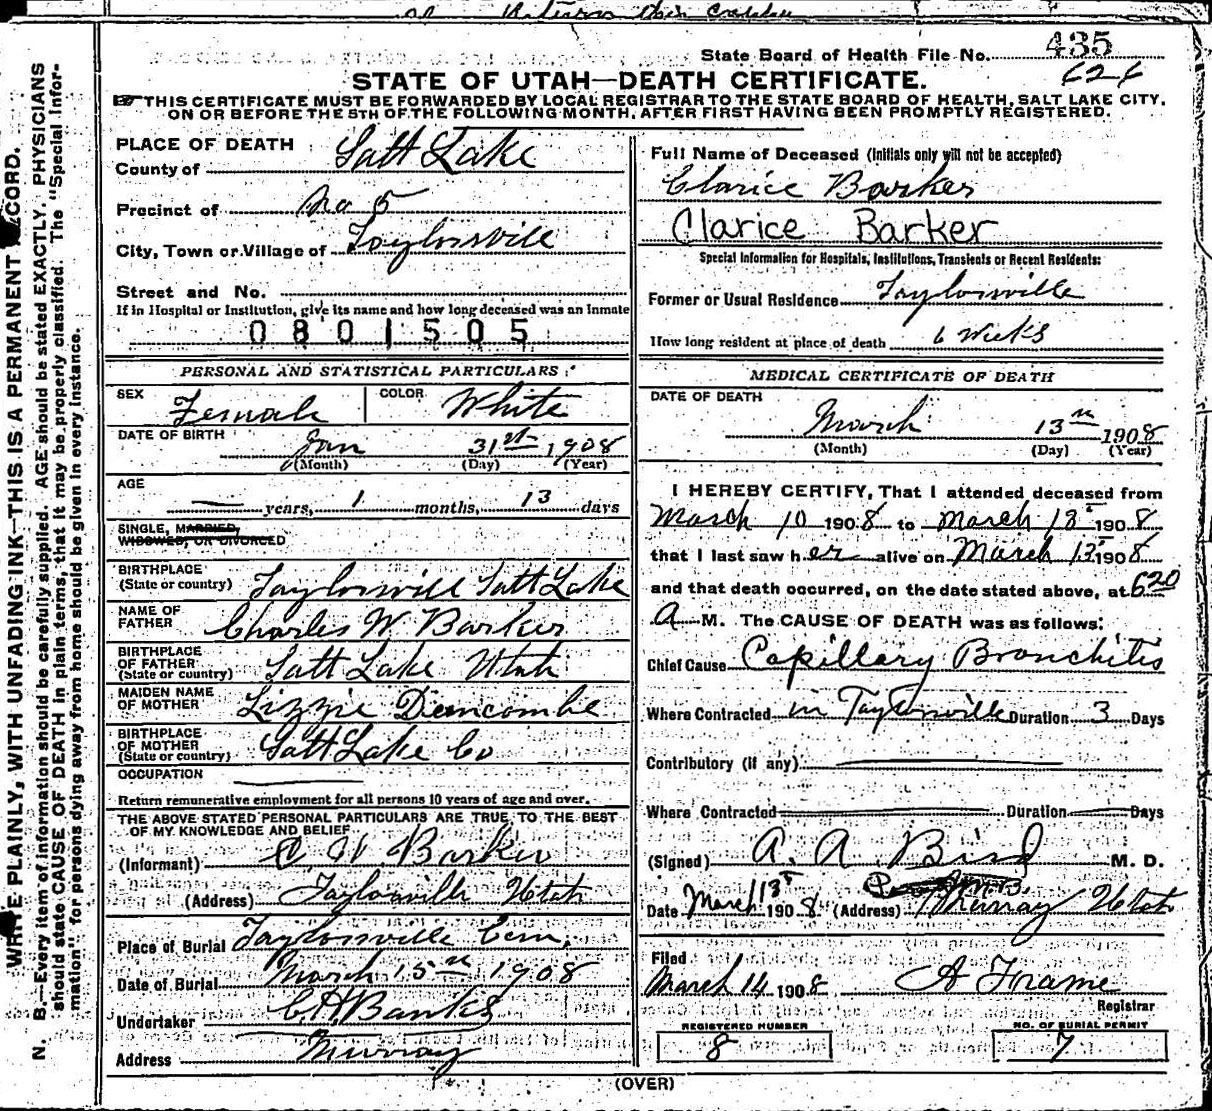 State Board of Health File No. 435
626
STATE OF UTAH—DEATH CERTIFICATE.
THIS CERTIFICATE MUST BE FORWARDED BY LOCAL REGISTRAR TO THE STATE BOARD OF HEALTH, SALT LAKE CITY,
ON OR BEFORE THE 5TH OF THE FOLLOWING MONTH, AFTER FIRST HAVING BEEN PROMPTLY REGISTERED.
WRITE PLAINLY, WITH UNFADING INK—THIS IS A PERMANENT RECORD.
N. B.—Every item of information should be carefully supplied. AGE should be stated EXACTLY. PHYSICIANS
should state CAUSE OF DEATH in plain terms, that it may be properly classified. The "Special Infor-
mation" for persons dying away from home should be given in every instance.
PLACE OF DEATH
County of Salt Lake
Precinct of No 5
City, Town or Village of Taylorsvill
Street and No.
If in Hospital or Institution, give its name and how long deceased was an inmate
0801505
PERSONAL AND STATISTICAL PARTICULARS
SEX Female COLOR White
DATE OF BIRTH Jan 31st 1908
(Month) (Day) (Year)
AGE
— years, 1 months, 13 days
SINGLE, MARRIED,
WIDOWED, OR DIVORCED
BIRTHPLACE
(State or country) Taylorsvill Salt Lake
NAME OF
FATHER Charles W Barker
BIRTHPLACE
OF FATHER
(State or country) Salt Lake Utah
MAIDEN NAME
OF MOTHER Lizzie
BIRTHPLACE
OF MOTHER
(State or country) Salt Lake Co
OCCUPATION
Return remunerative employment for all persons 10 years of age and over.
THE ABOVE STATED PERSONAL PARTICULARS ARE TRUE TO THE BEST
OF MY KNOWLEDGE AND BELIEF
(Informant) C W Barker
(Address) Taylorsville Utah
Place of Burial Taylorsville Cem.
Date of Burial March 15th 1908
Undertaker
Address Murray
Full Name of Deceased (Initials only will not be accepted)
Clarice Barker
Clarice Barker
Special Information for Hospitals, Institutions, Transients or Recent Residents:
Former or Usual Residence Taylorsville
How long resident at place of death 6 Weeks
MEDICAL CERTIFICATE OF DEATH
DATE OF DEATH
March 13th 1908
(Month) (Day) (Year)
I HEREBY CERTIFY, That I attended deceased from
March 10 1908 to March 13 1908
that I last saw her alive on March 13 1908
and that death occurred, on the date stated above, at 6 20
A M. The CAUSE OF DEATH was as follows:
Chief Cause Capillary Bronchitis
Where Contracted in Taylorsville Duration 3 Days
Contributory (if any)
Where Contracted Duration Days
(Signed) A. A. Bird M. D.
Date March 13 1908 (Address) Murray Utah
Filed
March 14 1908 A Frame
Registrar
REGISTERED NUMBER
8
NO. OF BURIAL PERMIT
7
(OVER)